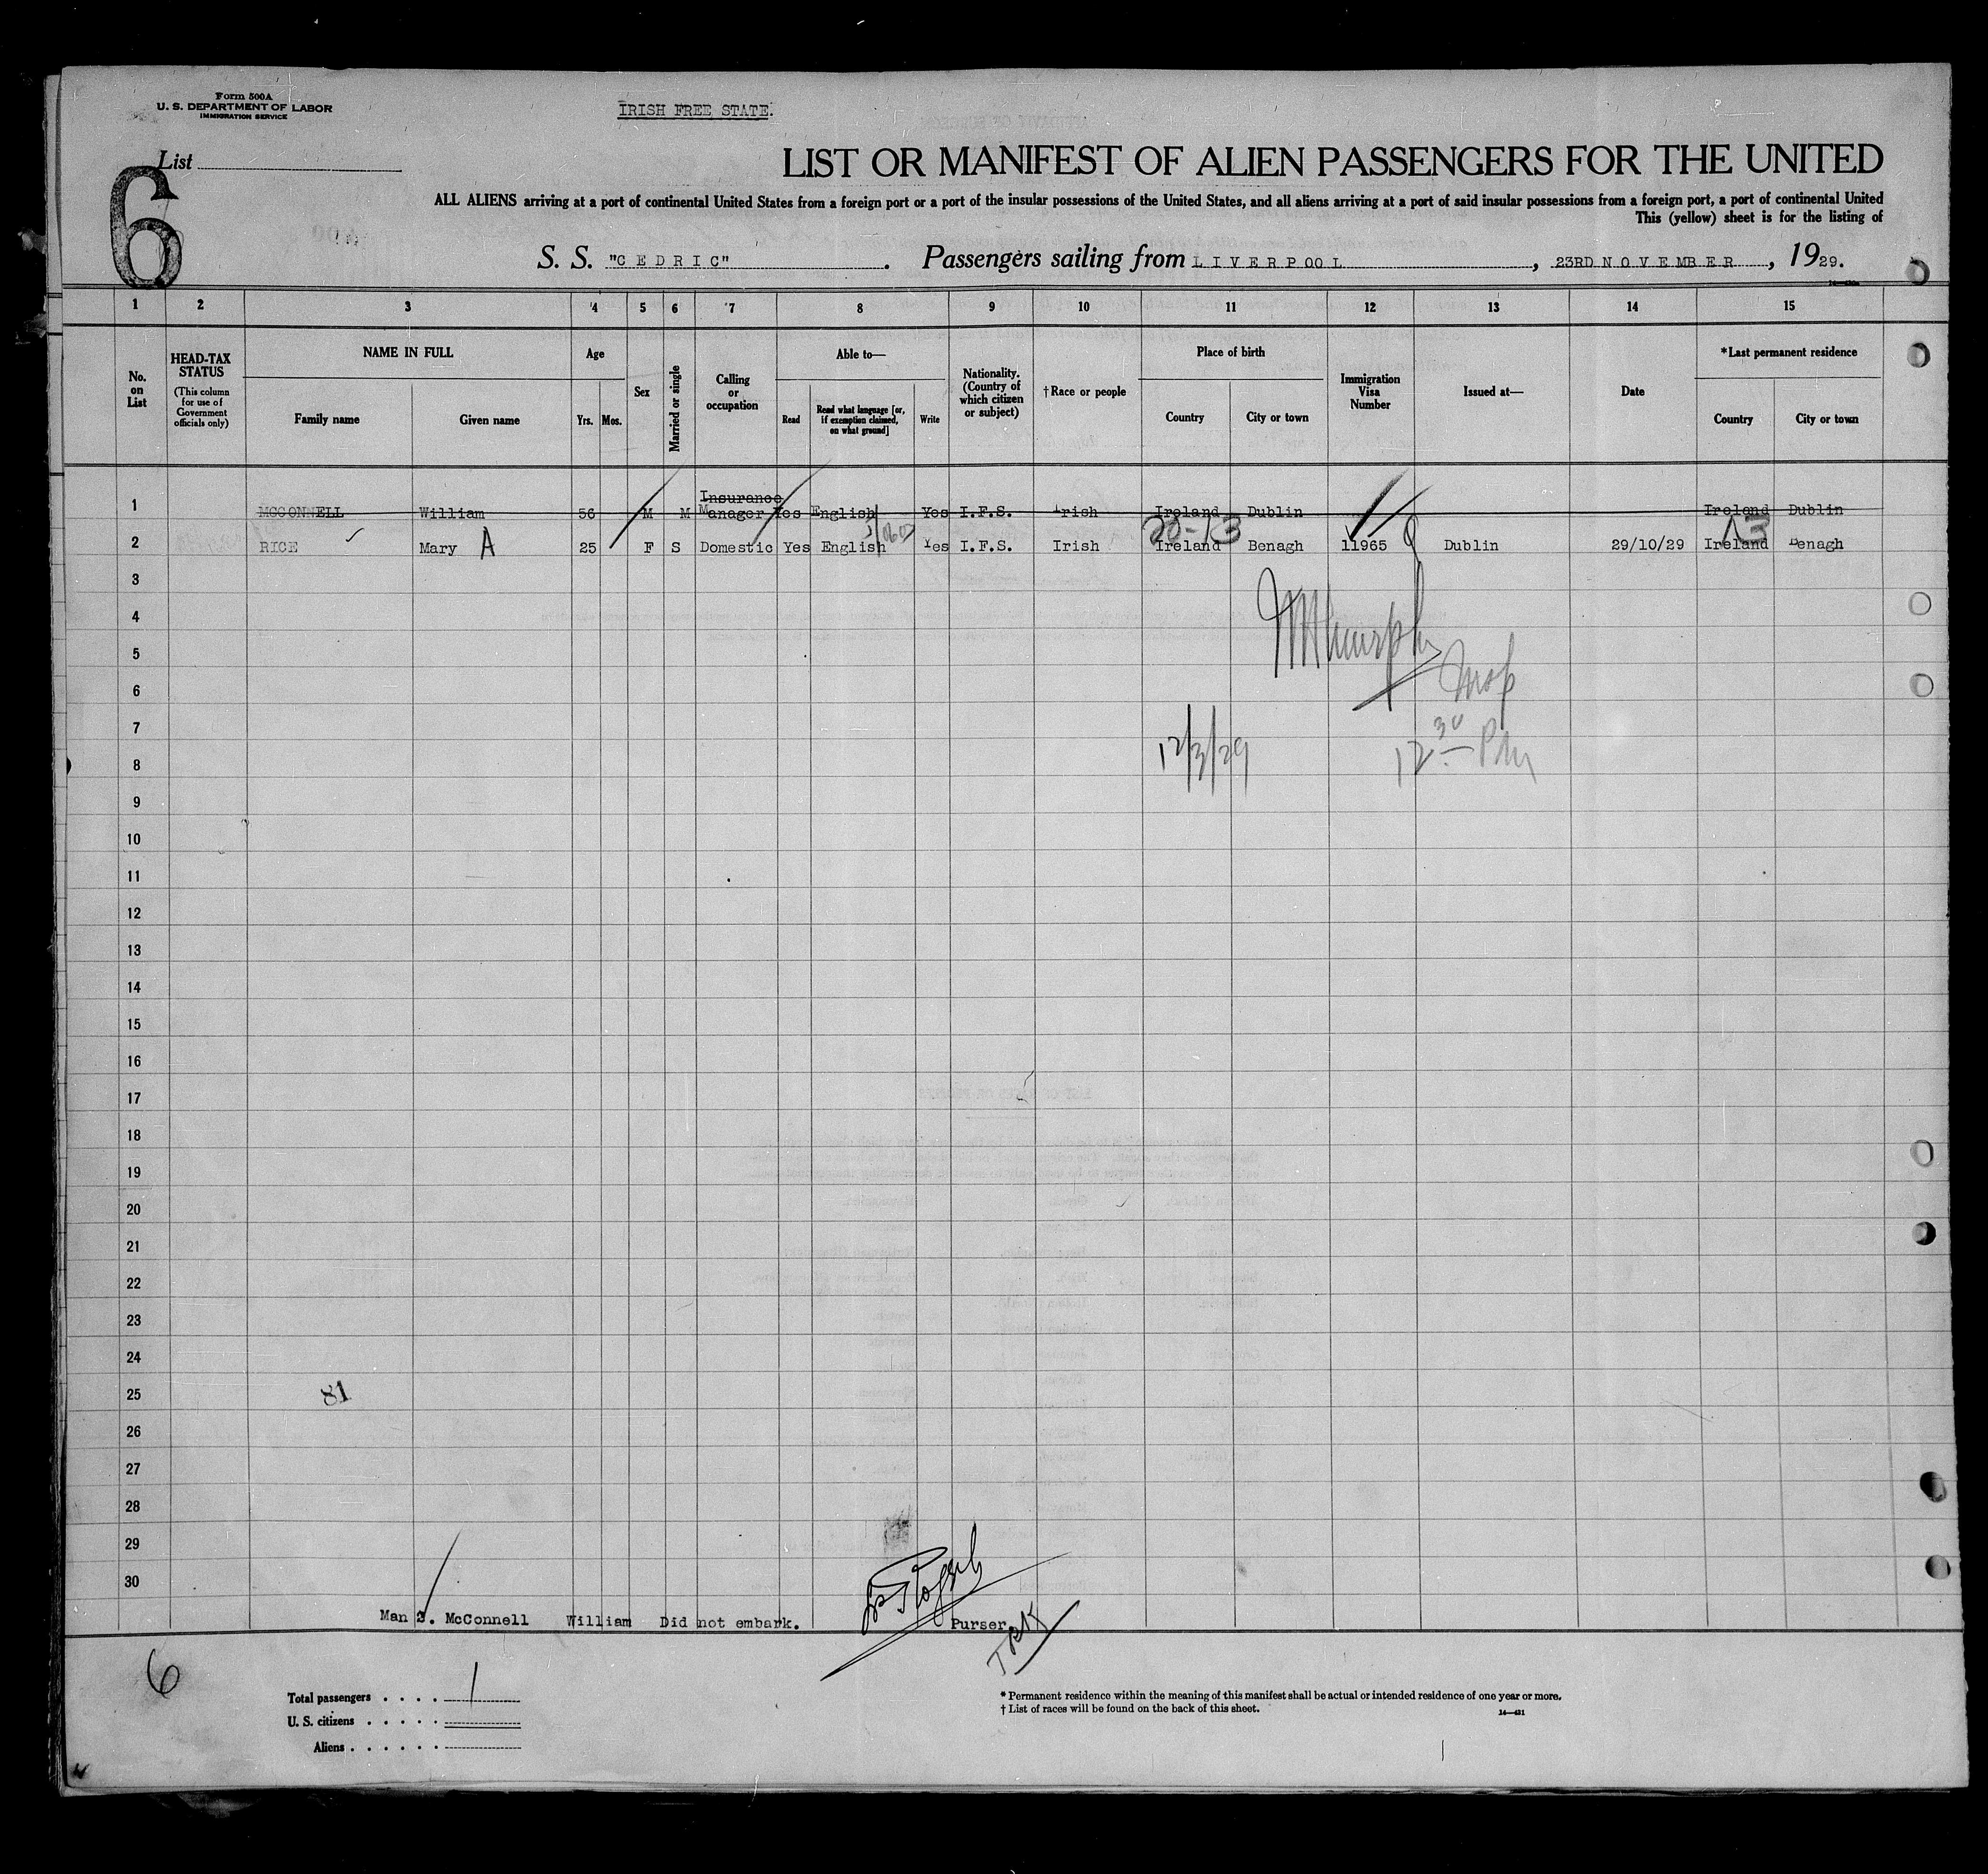 Form 500A
U. S. DEPARTMENT OF LABOR
IMMIGRATION SERVICE
IRISH FREE STATE.
List
6
LIST OR MANIFEST OF ALIEN PASSENGERS FOR THE UNITED
ALL ALIENS arriving at a port of continental United States from a foreign port or a port of the insular possessions of the United States, and all aliens arriving at a port of said insular possessions from a foreign port, a port of continental United
This (yellow) sheet is for the listing of
S. S. "CEDRIC". Passengers sailing from LIVERPOOL, 23RD NOVEMBER, 1929.
1 2 3 4 5 6 7 8 9 10 11 12 13 14 15
No. on List
HEAD-TAX STATUS
(This column for use of Government officials only)
NAME IN FULL
Family name Given name
Age
Yrs. Mos.
Sex
Married or single
Calling or occupation
Able to—
Read Read what language [or, if exemption claimed, on what ground] Write
Nationality. (Country of which citizen or subject)
† Race or people
Place of birth
Country City or town
Immigration Visa Number
Issued at—
Date
*Last permanent residence
Country City or town
1 MCCONNELL William 56 M M Insurance Manager Yes English Yes I.F.S. Irish Ireland Dublin Ireland Dublin
20-13 13
2 RICE Mary A 25 F S Domestic Yes English Yes I.F.S. Irish Ireland Benagh 11965 Dublin 29/10/29 Ireland Benagh
3
4
5
6
7
12/3/29
12 30 PM
8
9
10
11
12
13
14
15
16
17
18
19
20
21
22
23
24
25
81
26
27
28
29
30
Man 2. McConnell William Did not embark. Purser
6
Total passengers . . . . 1
U. S. citizens . . . . .
Aliens . . . . . .
* Permanent residence within the meaning of this manifest shall be actual or intended residence of one year or more.
† List of races will be found on the back of this sheet.
14—431